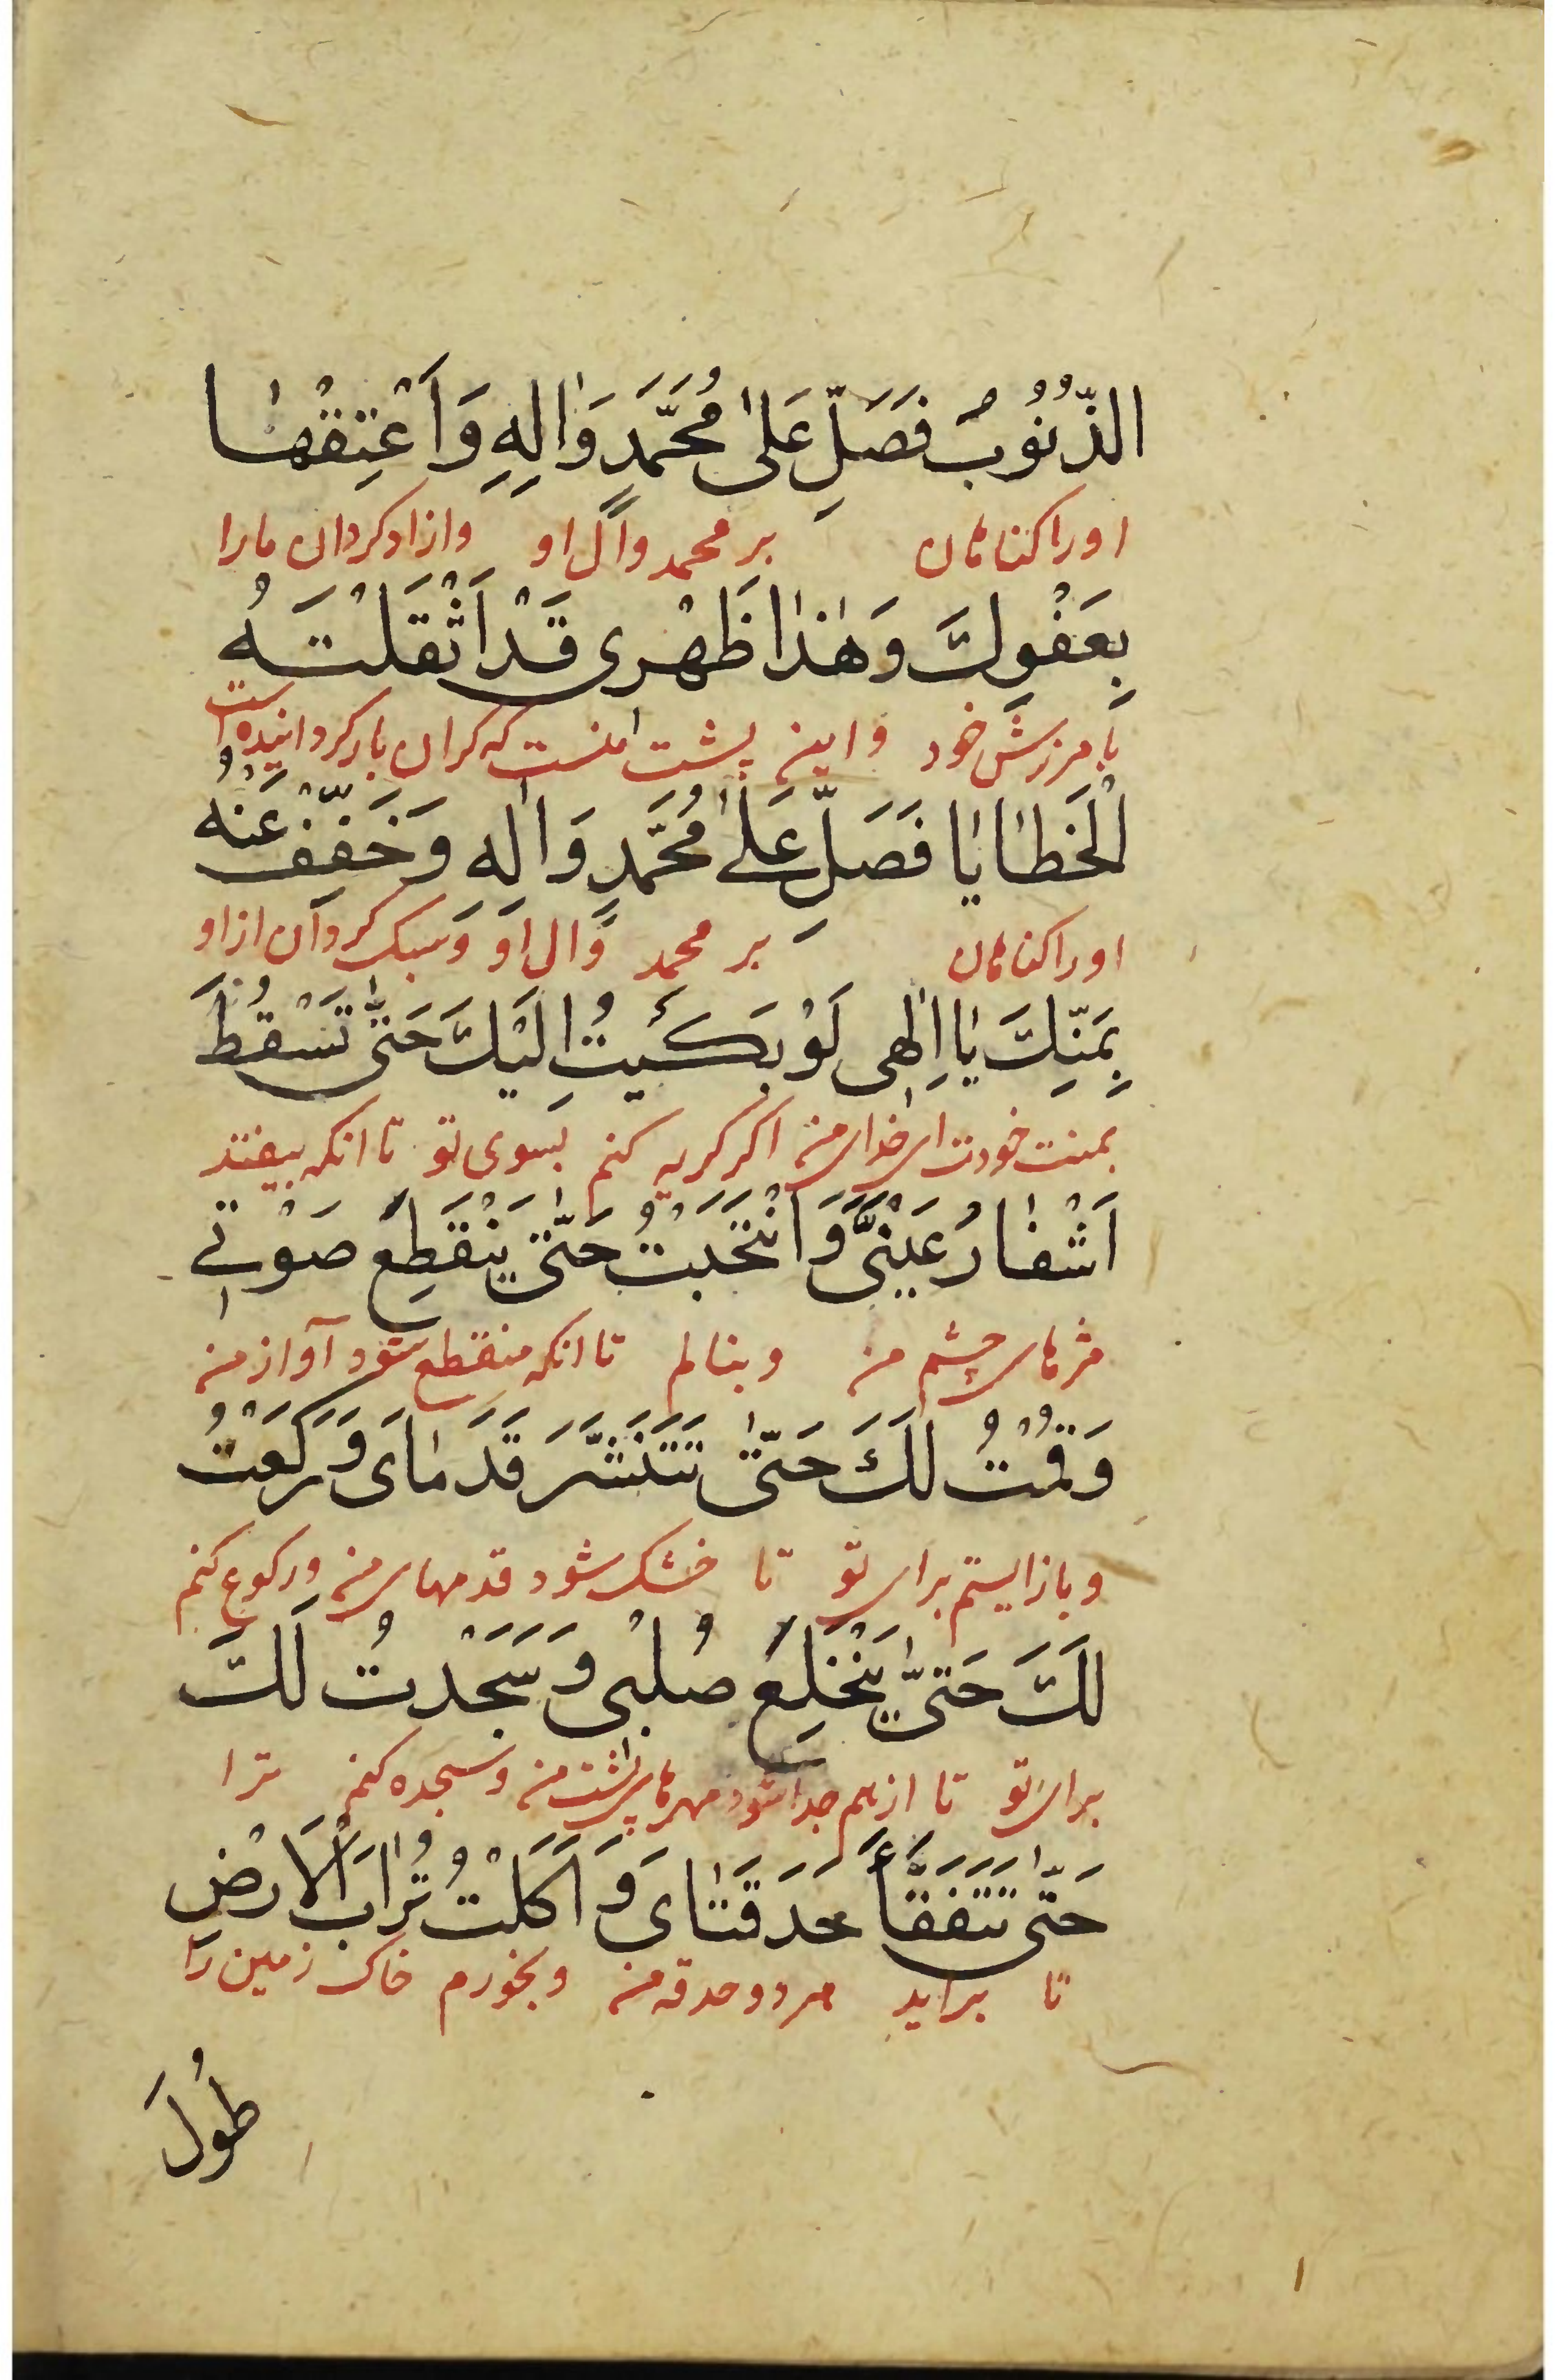 الذُّنُوبُ فَصَلِّ عَلىٰ مُحَمَّدٍ وَاٰلِهِ وَاَعْتِقْهٰا
اورا کناهان بر محمد وآل او وازاد کردان مارا
بِعَفْوِكَ وَهٰذٰا ظَهْرى قَدْ اَثْقَلَتْهُ
بامرزش خود واین پشت منست که کران بار کردانیده است
الْخَطٰايٰا فَصَلِّ عَلىٰ مُحَمَّدٍ وَاٰلِهِ وَخَفِّفْ عَنْهُ
اورا کناهان بر محمد وال او وسبک کردان از او
بِمَنِّكَ يٰا اِلٰهى لَوْ بَكَيْتُ اِلَيْكَ حَتّىٰ تَسْقُطَ
بمنت خودت ای خدای من اکر کریه کنم بسوی تو تا انکه بیفتد
اَشْفٰارُ عَيْنَىَّ وَانْتَحَبْتُ حَتّىٰ يَنْقَطِعَ صَوْتى
مژهای چشم من وبنالم تا انکه منقطع شود آواز من
وَقُمْتُ لَكَ حَتّىٰ تَتَنَشَّرَ قَدَمٰاىَ وَرَكَعْتُ
وباز ایستم برای تو تا خشک شود قدمهای من ورکوع کنم
لَكَ حَتّىٰ يَنْخَلِعَ صُلْبى وَسَجَدْتُ لَكَ
برای تو تا از هم جدا شود مهرهای پشت من وسجده کنم ترا
حَتّىٰ تَتَفَقَّأَ حَدَقَتٰاىَ وَاَكَلْتُ تُرٰابَ الْاَرْضِ
تا براید هر دو حدقه من وبخورم خاک زمین را
طُولَ